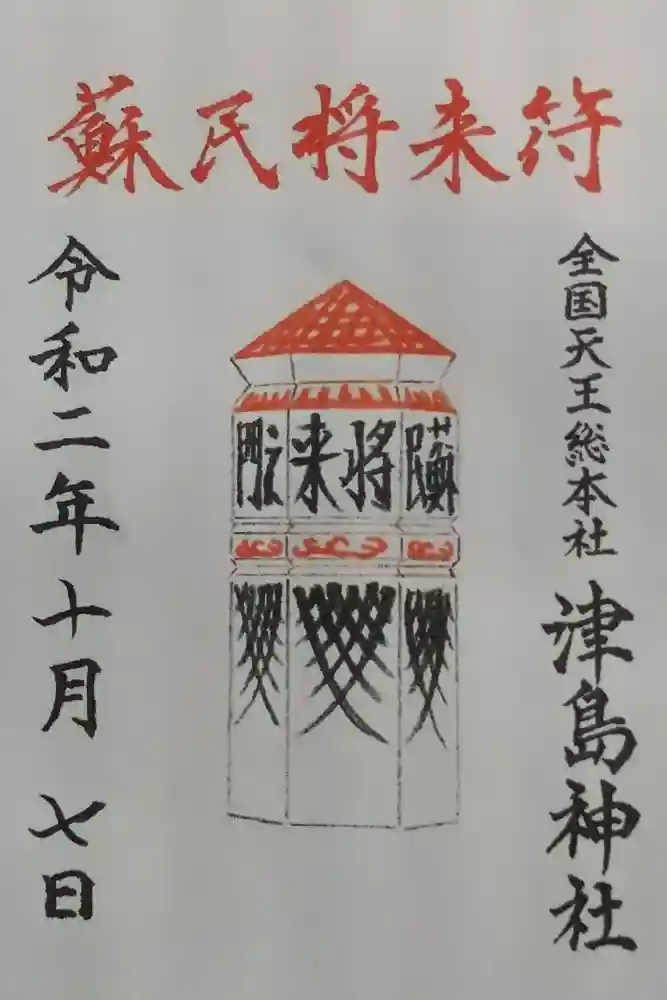 蘇民将来符
全国天王総本社 津島神社
来将
令和二年十月七日